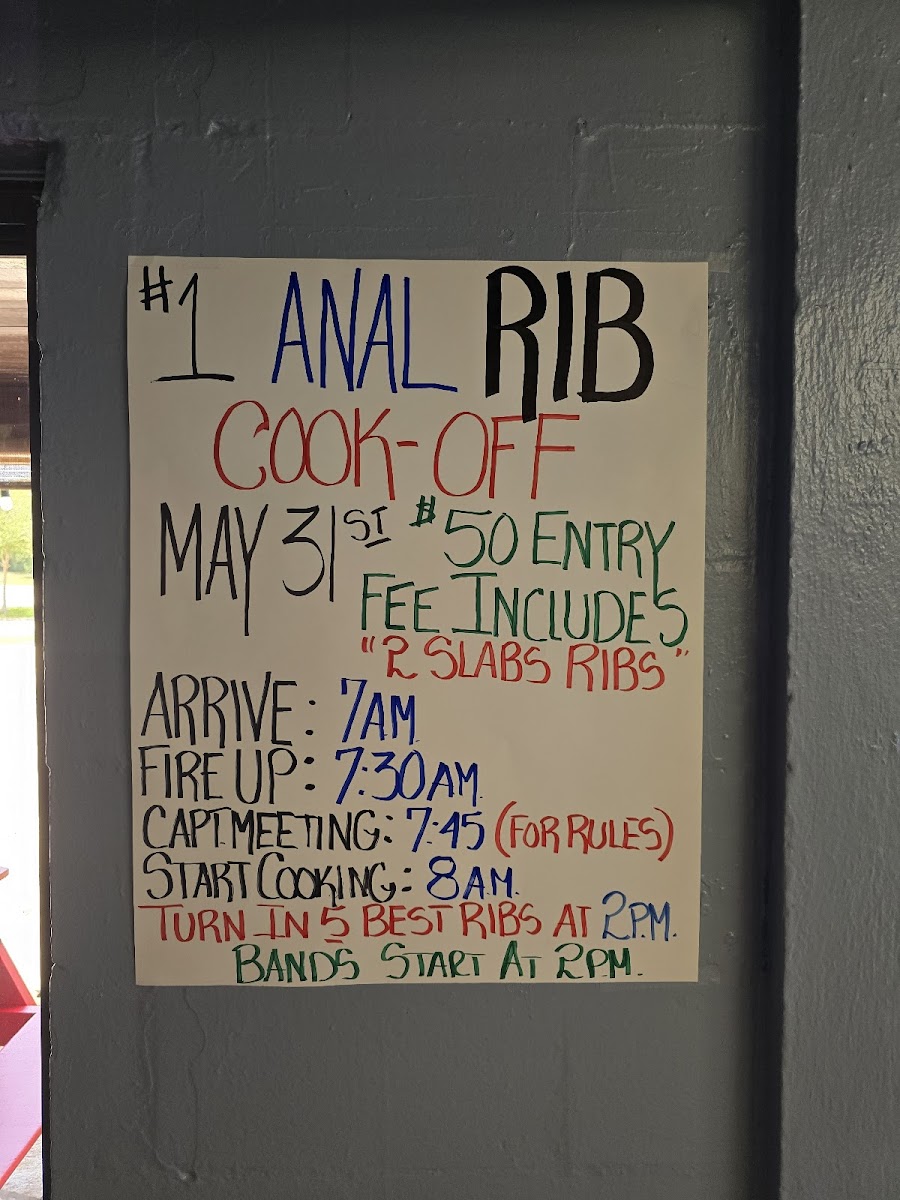 #1 ANAL RIB
COOK-OFF
MAY 31ST $50 ENTRY
FEE INCLUDES
"2 SLABS RIBS"
ARRIVE: 7AM
FIRE UP: 7:30AM.
CAPT. MEETING: 7:45 (FOR RULES)
START COOKING: 8AM.
TURN IN 5 BEST RIBS AT 2P.M.
BANDS START AT 2PM.